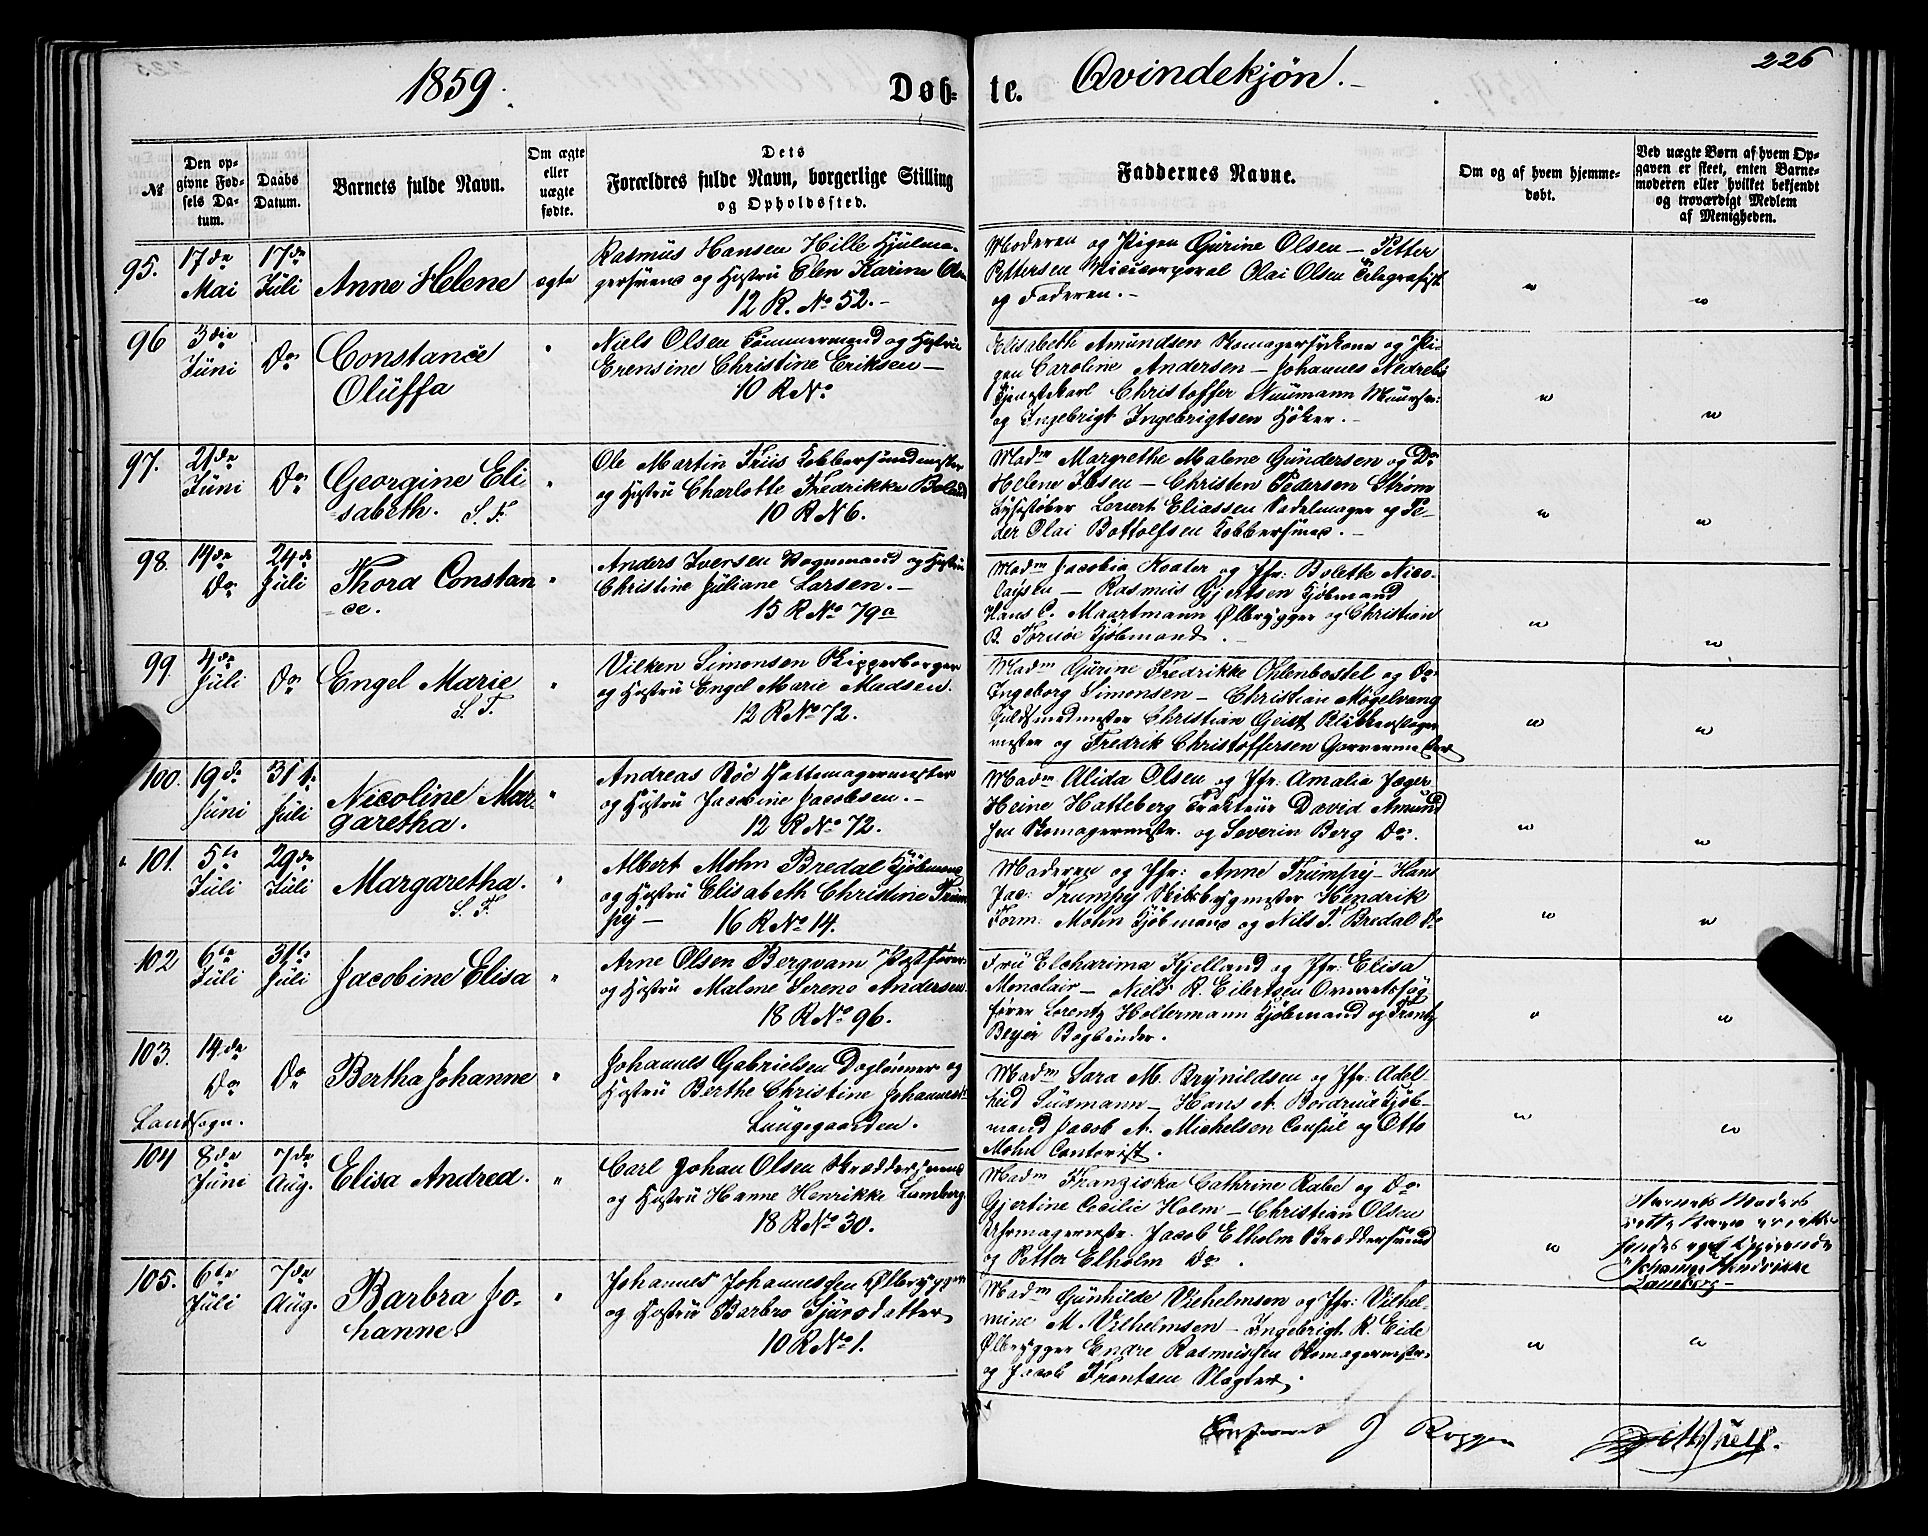 1859.
Døb-
te.
Qvindekjön.-
226
No
Den op-
givne Fød-
sels Da-
tum.
Daabs
Datum.
Barnets fulde Navn.
Om ægte
eller
uægte
fødte.
Dets
Forældres fulde Navn, borgerlige Stilling
og Opholdssted.
Faddernes Navne.
Om og af hvem hjemme-
døbt.
Ved uægte Børn af hvem Op-
gaven er skeet, enten Barne-
moderen eller hvilket bekjendt
og troværdigt Medlem
af Menigheden.
95.
17de
Mai
17de
Juli
Anne Helene
ægte
Rasmus Hansen Hille Hjulma-
gersvend og Hustru Elen Karine Olsen
12 R. No 52.-
Moderen og Pigen Gurine Olsen - Petter
Pettersen Vicecorporal Olai Olsen Telegrafist
og Faderen.-
96
3die
Juni
Do
Constance
Oluffa
Niels Olsen Tømmermand og Hustru
Erensine Christine Eriksen -
10 R No
Elisabeth Amundsen Skomagerfrkone og Pi-
gen Caroline Andersen - Johannes Nedrebö
Tjenestekarl Christoffer Nuumann Muursv:
og Ingebrigt Ingebrigtsen Høker.-
97.
21de
Juni
Do
Georgine Eli-
sabeth. S. F.
Ole Martin Friis Kobbersmedmester
og Hustru Charlotte Fredrikke Boland
10 R N 6.
Madm Margrethe Malene Gundersen og Do
Helene Ibsen - Christen Pedersen Strøm
Lysestøber Lenert Eliassen Sadelmager og Pe-
der Olai Bottolfsen Kobbersmed.-
98.
14de
Do
24de
Juli
Thora Constan-
ce.
Anders Iversen Vognmand og Hustru
Christine Juliane Larsen.-
15 R No 79a
Madm Jacobia Koater og Jfr: Bolette Nico-
laysen - Rasmus Gjertsen Kjöbmand
Hans C. Maartmann Ølbrygger og Christian
B. Tornöe Kjöbmand.-
99.
4de
Juli
Do
Engel Marie
S. F.
Vilken Simonsen Skipperborger
og Hustru Engel Marie Madsen.
12 R No 72.
Madm Gurine Fredrikke Ohlenbostel og Do
Ingeborg Simonsen - Christian Møgelvang
Guldsmedmester Christian Geist Blikkenslager-
mester og Fredrik Christoffersen Garvermester
100.
19de
Juni
31te
Juli
Nicoline Mar-
garetha.
Andreas Böe Hattemagermester
og Hustru Jacobine Jacobsen.-
12 R No 72.
Madm Alida Olsen og Jfr: Amalia Jæger
Heine Hatteberg Trakteur David Amund-
sen Skomagermestr. og Severin Berg Do.
101.
5te
Juli
29de
Juli
Margaretha.
S. F.
Albert Mohn Bredal Kjöbmand
og Hustru Elisabeth Christine Trum-
py - 16 R No 14.
Moderen og Jfr: Anne Trumpy - Hans
Jac: Trumpy Skibsbygmester Hendrik
Form: Mohn Kjöbmand og Nils T. Bredal Do
102
6te
Juli
31te
Juli
Jacobine Elisa
Arne Olsen Bergvam Postfører
og Hustru Malene Serene Andersen
18 R No 96.
Fru Elcharima Kjelland og Jfr: Elisa
Monclair - Niels R. Eilertsen Overretssag-
fører Lorentz Holtermann Kjöbmand og Frantz
Beyer Bogbinder.
103.
14de
Do
Do
Landsogn.
Bertha Johanne
Johannes Gabrielsen Daglønner og
Hustru Berthe Christine Johannesd:
Lungegaarden.
Madm Sara M. Brynildsen og Jfr: Adel-
heid Sudmann - Hans A. Bordrue Kjöb-
mand Jacob A. Michelsen Consul og Otto
Mohn Contorist.
104
8de
Juni
7de
Aug.
Elisa Andrea.
Carl Johan Olsen Skræddersvend
og Hustru Hanne Henrikke Lamberg
18 R No 30.
Madm Franziska Cathrine Rabe og Do
Gjertine Cecilie Holm - Christian Olsen
Uhrmagermestr. Jacob Elholm Skræddersvend
og Petter Elholm Do.
Barnets Moders
rette Navn er efter
Johanne Hendrikke
Lamberg -
105.
6te
Juli
7de
Aug.
Barbra Jo-
hanne.
Johannes Johannessen Ølbrygger
og Hustru Barbro Sjursdatter
10 R No 1.
Madm Gunhilde Vilhelmsen og Jfr: Vilhel-
mine M. Vilhelmsen - Ingebrigt R. Eide
Ølbrygger Endre Rasmussen Skomagermester
og Jacob Frantsen Slagter.